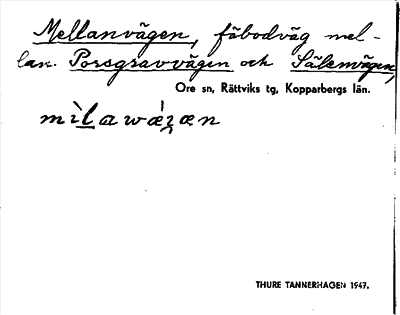 Mellanvägen, fäbodväg mel-
lan Porsgravvägen och Sälenvägen,
Ore sn, Rättviks tg, Kopparbergs län.
mìlawǽʒæn
THURE TANNERHAGEN 1947.